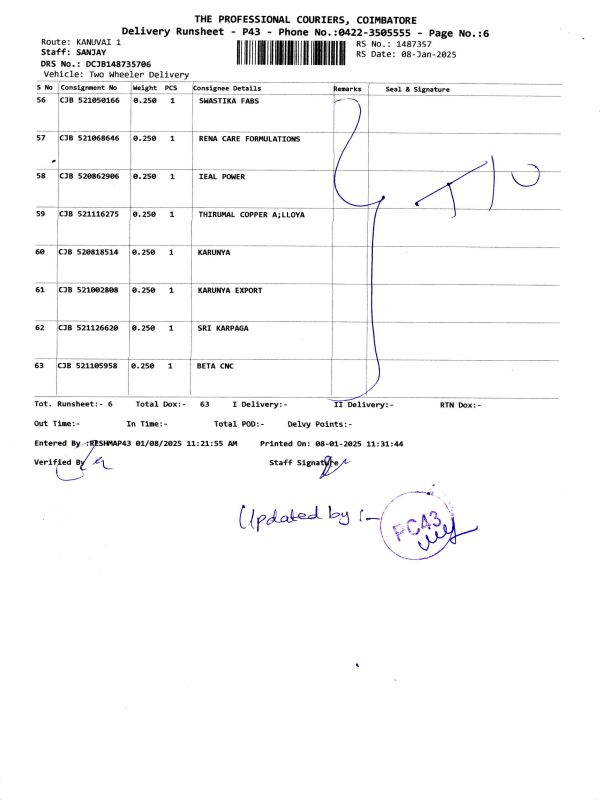 THE PROFESSIONAL COURIERS, COIMBATORE
Delivery Runsheet - P43 - Phone No.:0422-3505555 - Page No.:6
Route: KANUVAI 1
RS No.: 1487357
Staff: SANJAY
RS Date: 08-Jan-2025
DRS No.: DCJB148735706
Vehicle: Two Wheeler Delivery
S No Consignment No Weight PCS Consignee Details Remarks Seal & Signature
56 CJB 521050166 0.250 1 SWASTIKA FABS
57 CJB 521068646 0.250 1 RENA CARE FORMULATIONS
58 CJB 520862906 0.250 1 IEAL POWER
59 CJB 521116275 0.250 1 THIRUMAL COPPER A;LLOYA
60 CJB 520818514 0.250 1 KARUNYA
61 CJB 521002808 0.250 1 KARUNYA EXPORT
62 CJB 521126620 0.250 1 SRI KARPAGA
63 CJB 521105958 0.250 1 BETA CNC
Tot. Runsheet:- 6 Total Dox:- 63 I Delivery:- II Delivery:- RTN Dox:-
Out Time:- In Time:- Total POD:- Delvy Points:-
Entered By :RESHMAP43 01/08/2025 11:21:55 AM Printed On: 08-01-2025 11:31:44
Verified By Staff Signature
Updated by :-
PC43